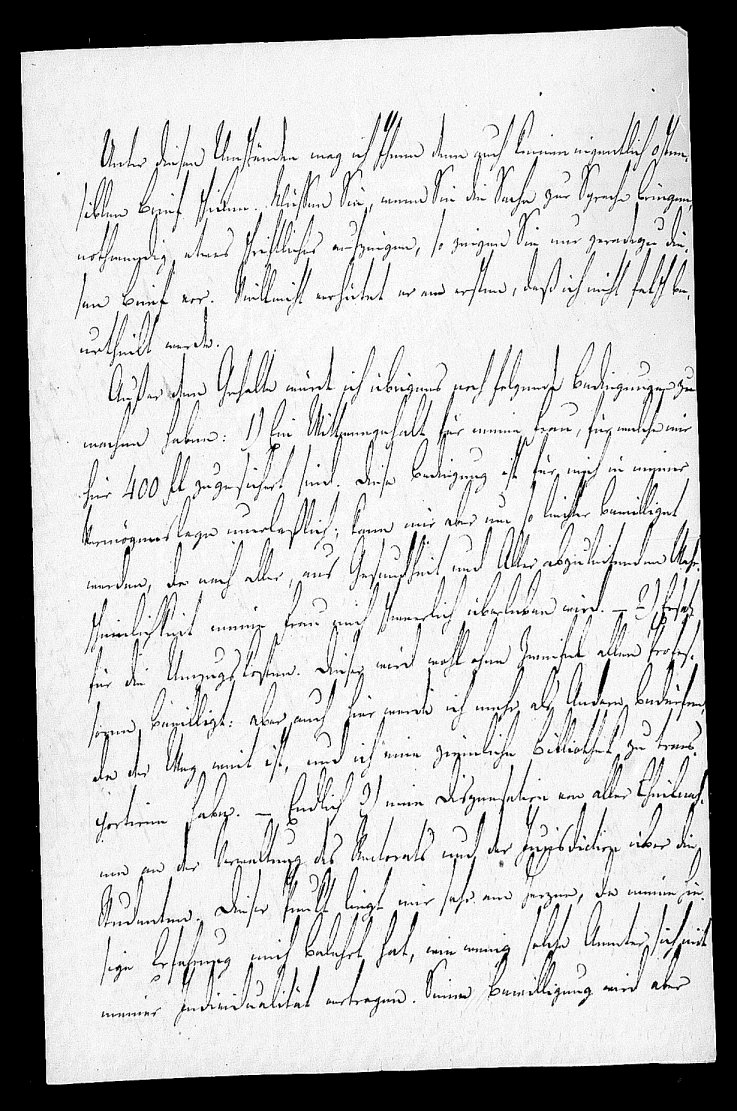 Unter diesen Umständen mag ich Ihnen denn auch keinen eigentlich osten-
siblen Brief schicken. Müssen Sie, wenn Sie die Sache zur Sprache bringen,
nothwendig etwas schriftliches aufzeigen, so zeigen Sie nur geradezu die-
sen Brief vor. Vielleicht verhütet er am ersten, daß ich nicht falsch be-
urtheilt werde.
Außer dem Gehalte würde ich übrigens noch folgende Bedingungen zu
machen haben: 1) Ein Wittwengehalt für meine Frau, für welche mir
hier 400 fl zugesichert sind. Diese Bedingung ist für mich in meiner
Vermögenslage unerlaßlich; kann mir aber um so leichter bewilligt
werden, da nach aller, aus Gesundheit und Alter abzuleitenden Wahr-
scheinlichkeit meine Frau mich schwerlich überleben wird. — 2) Ersatz
für die Umzugskosten. Dieser wird wohl ohne Zweifel allen Profes-
soren bewilligt: aber auch hier werde ich mehr als Andere bedürfen,
da der Weg weit ist, und ich eine ziemliche Bibliothek zu trans-
portiren habe. — Endlich 3) eine Dispensation von aller Theilnah-
me an der Verwaltung des Rectorats und der Jurisdiction über die
Studenten. Dieser Punkt liegt mir sehr am Herzen, da meine hie-
sige Erfahrung mich belehrt hat, wie wenig solche Aemter sich mit
meiner Individualität vertragen. Seine Bewilligung wird aber